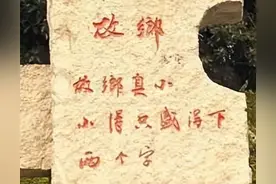 故鄉
故鄉真小
小得只盛得下
兩个字